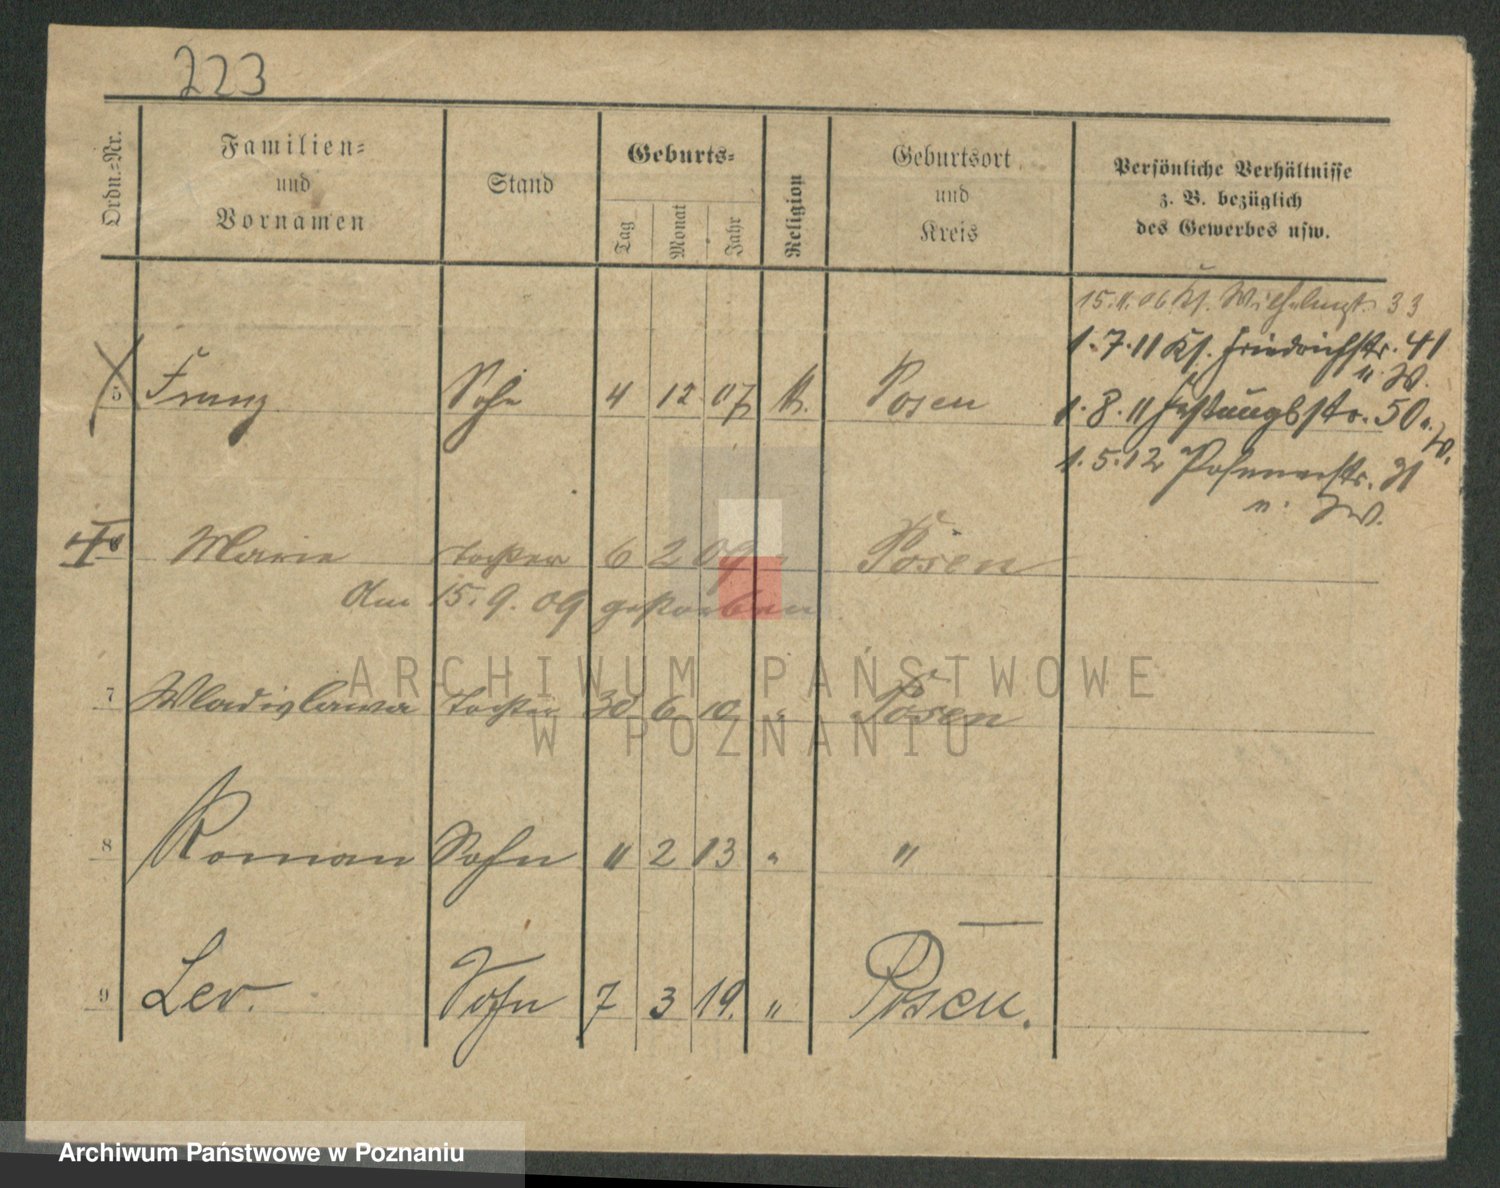 223
Ordn.-Nr.
Familien-
und
Vornamen
Stand
Geburts-
Tag
Monat
Jahr
Religion
Geburtsort
und
Kreis
Persönliche Verhältnisse
z. B. bezüglich
des Gewerbes usw.
15.11.06 Kl. Wilhelmstr. 33
1.7.11 Kl. Friedrichstr. 41
u. W.
5 Franz Sohn 4 12 07 k. Posen
1.8.11 Festungsstr. 50 u. W.
1.5.12 Posenerstr. 31
u. W.
6 Marie Tochter 6 2 09 " Posen
Am 15.9.09 gestorben
7 Wladislawa Tochter 30 6 10 " Posen
8 Roman Sohn 11 2 13 " "
9 Leo. Sohn 7 3 19. " Posen.
ARCHIWUM PAŃSTWOWE
W POZNANIU
Archiwum Państwowe w Poznaniu